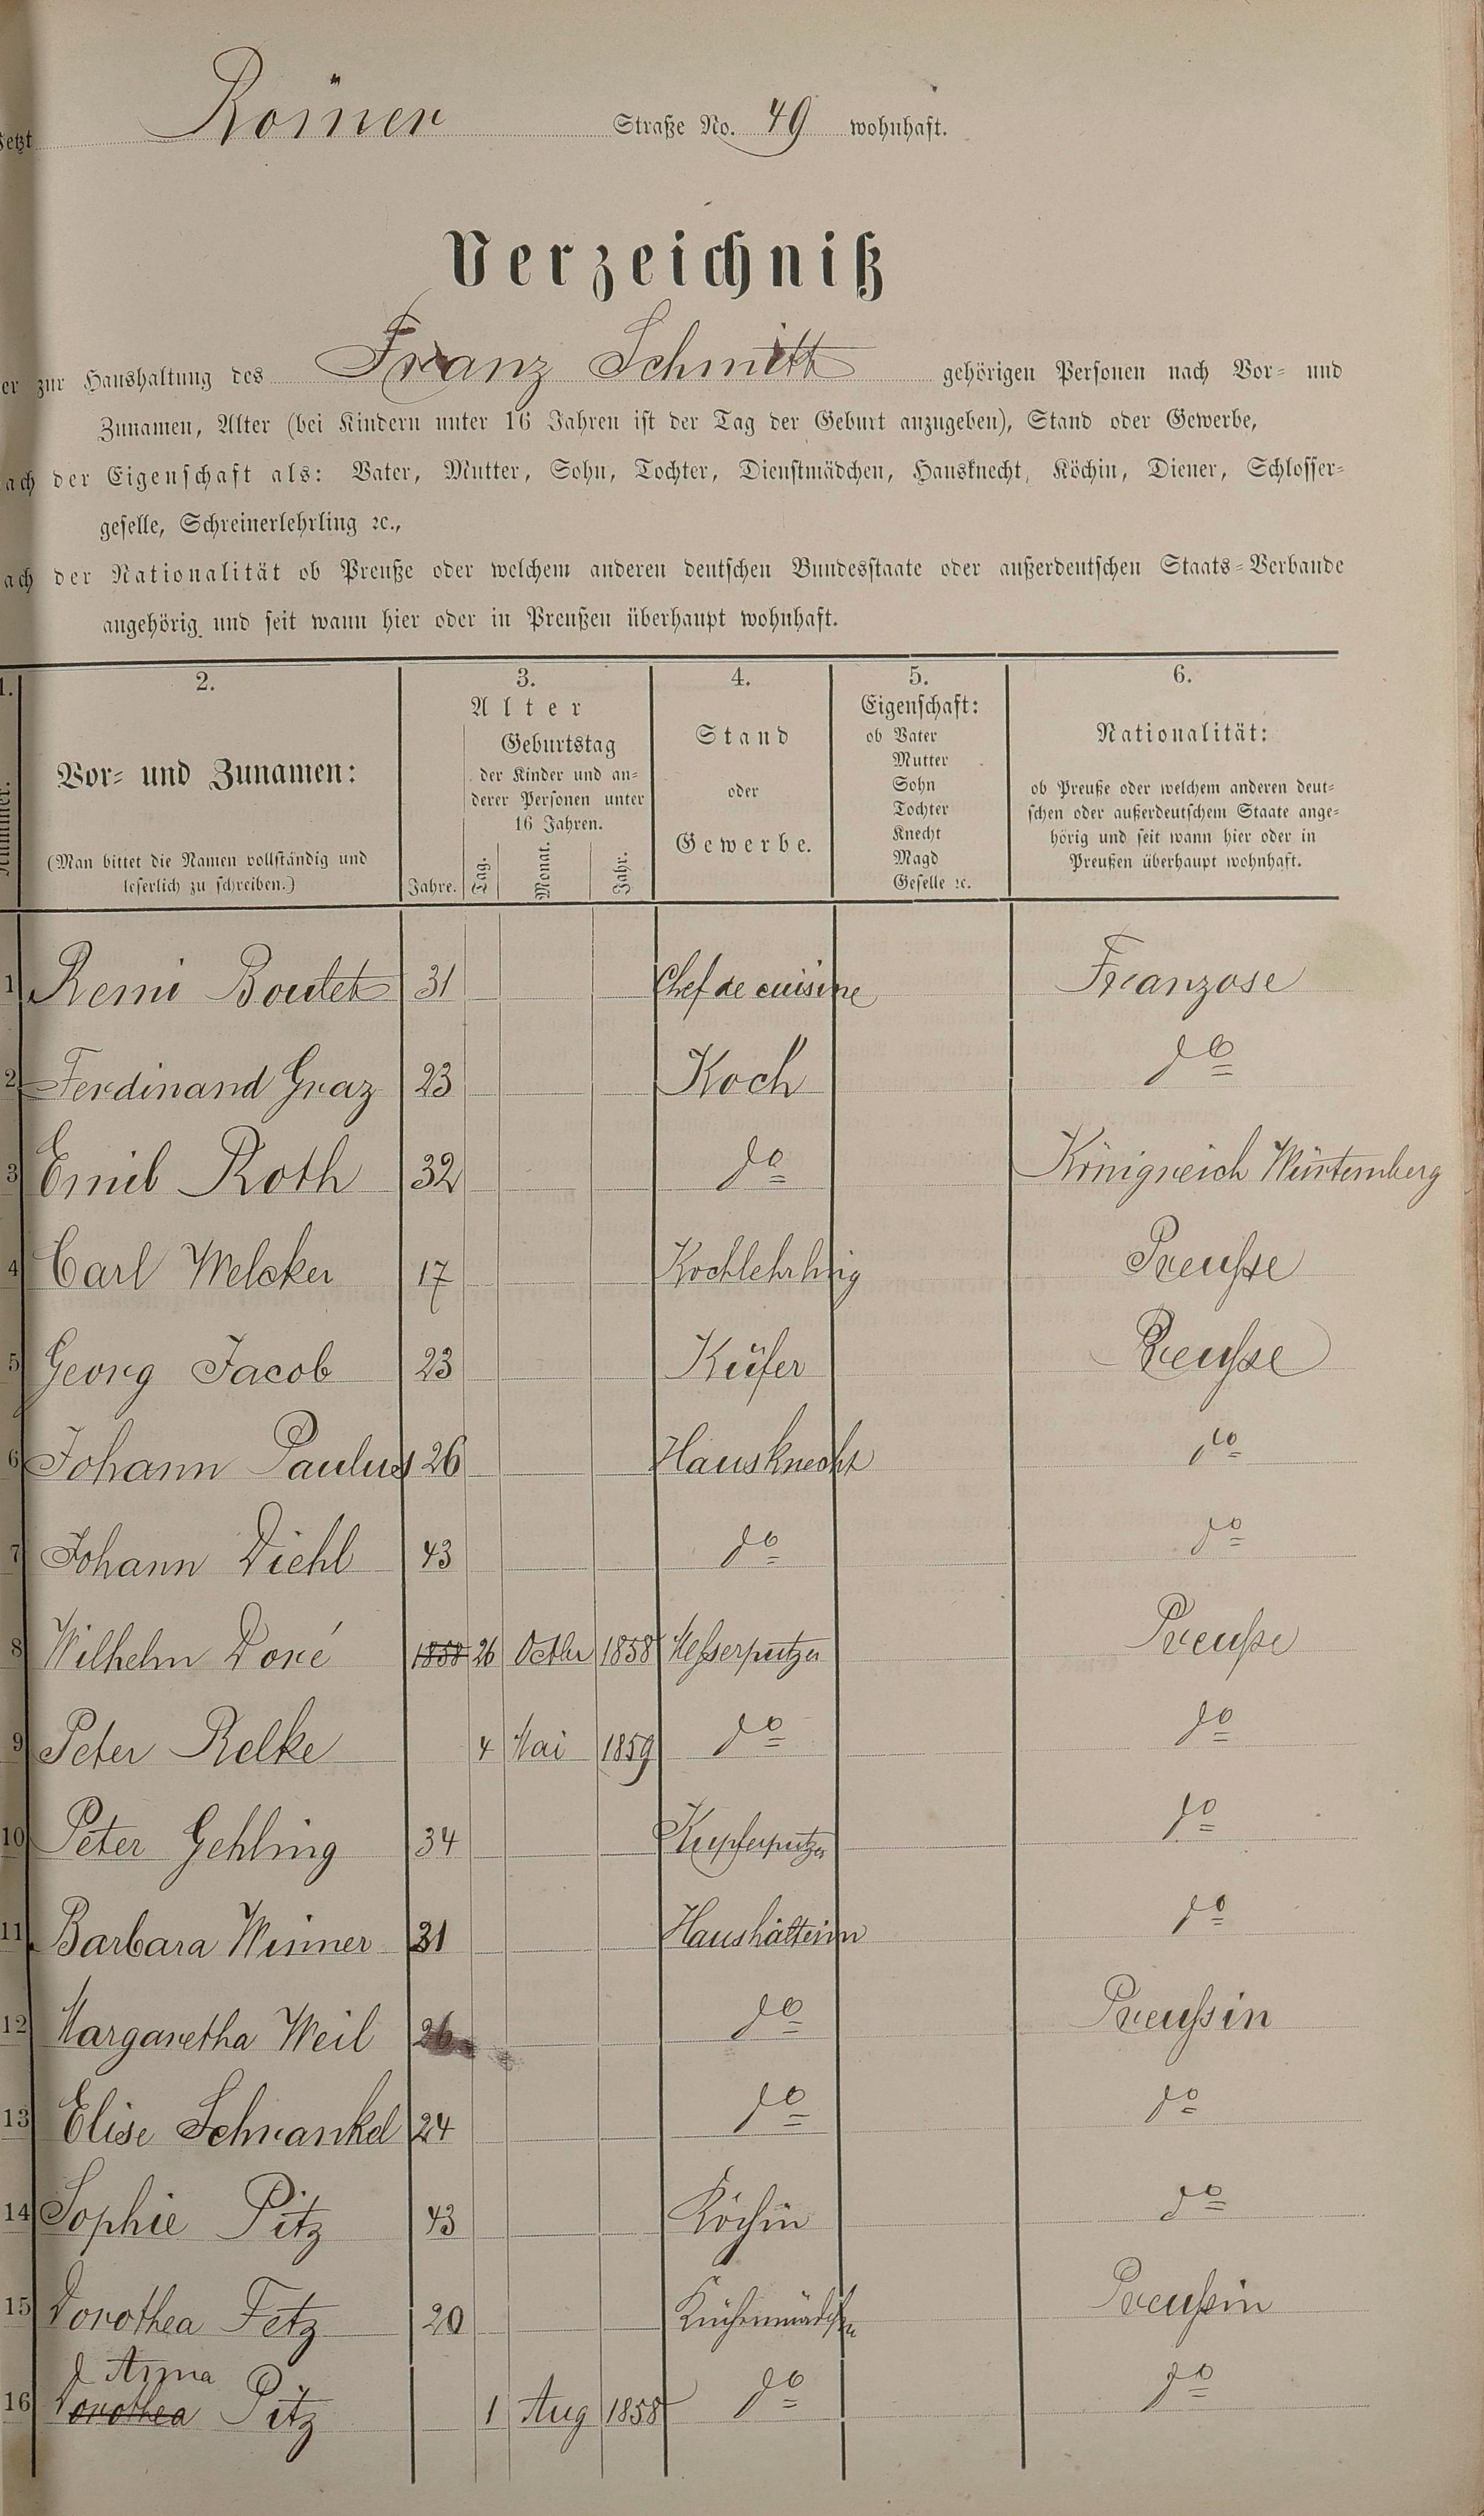 Jetzt Römer Straße No. 49 wohnhaft.
Verzeichniß
er zur Haushaltung des Franz Schmitt gehörigen Personen nach Vor- und
Zunamen, Alter (bei Kindern unter 16 Jahren ist der Tag der Geburt anzugeben), Stand oder Gewerbe,
ach der Eigenschaft als: Vater, Mutter, Sohn, Tochter, Dienstmädchen, Hausknecht, Köchin, Diener, Schlosser-
geselle, Schreinerlehrling ꝛc.,
ach der Nationalität ob Preuße oder welchem anderen deutschen Bundesstaate oder außerdeutschen Staats-Verbande
angehörig und seit wann hier oder in Preußen überhaupt wohnhaft.
1. 2. 3. 4. 5. 6.
Nummer.
Vor- und Zunamen:
(Man bittet die Namen vollständig und
leserlich zu schreiben.)
Alter
Geburtstag
der Kinder und an-
derer Personen unter
16 Jahren.
Jahre. Tag. Monat. Jahr.
Stand
oder
Gewerbe.
Eigenschaft:
ob Vater
Mutter
Sohn
Tochter
Knecht
Magd
Geselle ꝛc.
Nationalität:
ob Preuße oder welchem anderen deut-
schen oder außerdeutschem Staate ange-
hörig und seit wann hier oder in
Preußen überhaupt wohnhaft.
1 Remi Boutet 31 Chef de cuisine Franzose
2 Ferdinand Graz 23 Koch do
3 Emil Roth 32 do Königreich Würtemberg
4 Carl Welcker 17 Kochlehrling Preuße
5 Georg Jacob 23 Küfer Preuße
6 Johann Paulus 26 Hausknecht do
7 Johann Diehl 43 do do
8 Wilhelm Doré 1858 26 Octbr 1858 Messerputzer Preuße
9 Peter Relke 4 Mai 1859 do do
10 Peter Gehling 34 Kupferputzer do
11 Barbara Wimmer 31 Haushälterin do
12 Margaretha Weil 26 do Preußin
13 Elise Schrankel 24 do do
14 Sophie Pitz 43 Köchin do
15 Dorothea Fetz 20 Küchenmädchen Preußin
Anna
16 Dorothea Pitz 1 Aug 1858 do do